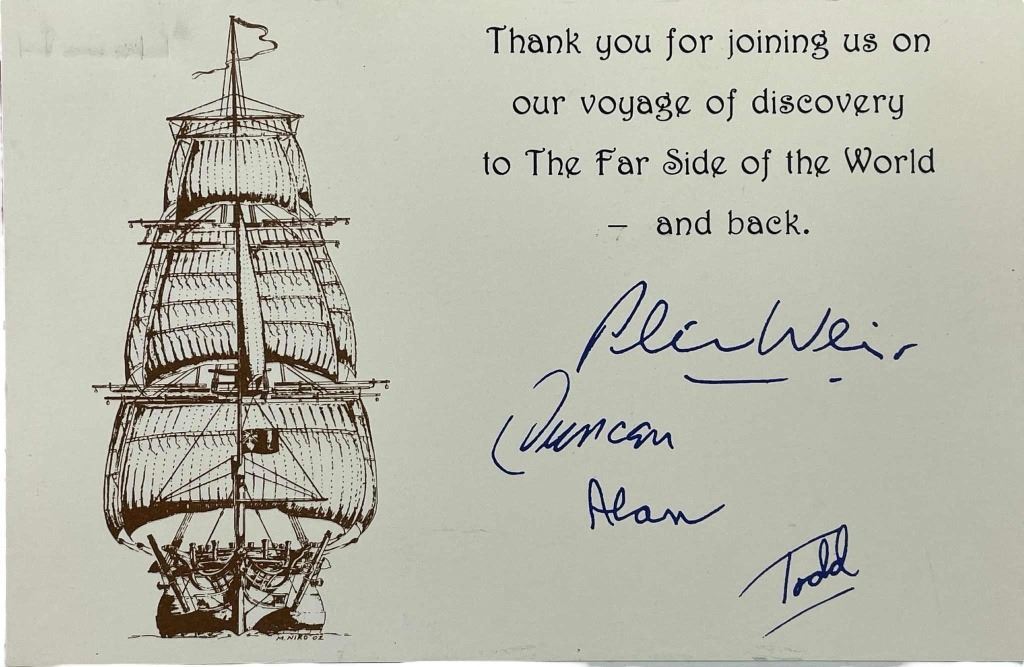 Thank you for joining us on
our voyage of discovery
to The Far Side of the World
– and back.
Peter Weir
Duncan
Alan
Todd
M. NIRO 02